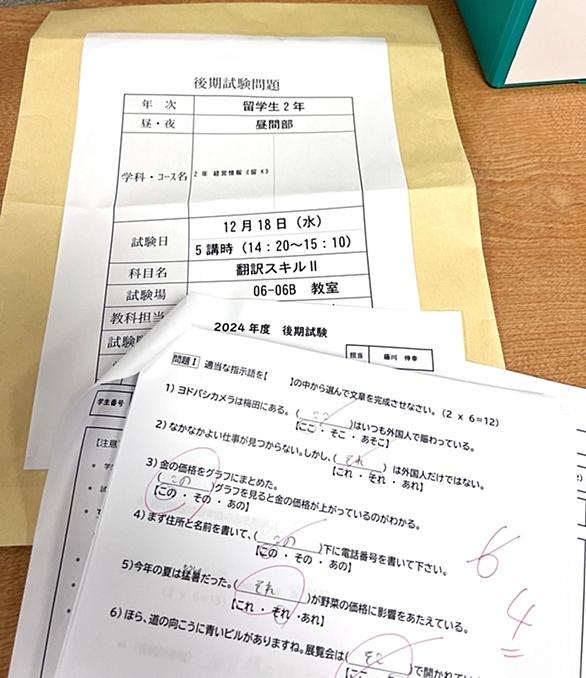 後期試験問題
年 次 留学生2年
昼・夜 昼間部
学科・コース名 2年 経営情報《留K》
試験日 12月18日（水）
5講時（14：20〜15：10）
科目名 翻訳スキルⅡ
試験場 06-06B 教室
教科担当
試験
2024年度 後期試験
担当 藤川 伸幸
学生番号
【注意
問題Ⅰ 適当な指示語を【 】の中から選んで文章を完成させなさい。（2 x 6=12）
1）ヨドバシカメラは梅田にある。（ ここ ）はいつも外国人で賑わっている。
【ここ・そこ・あそこ】
2）なかなかよい仕事が見つからない。しかし、（ それ ）は外国人だけではない。
【これ・それ・あれ】
3）金の価格をグラフにまとめた。
（ この ）グラフを見ると金の価格が上がっているのがわかる。
【この・その・あの】
4）まず住所と名前を書いて、（ この ）下に電話番号を書いて下さい。
【この・その・あの】
5）今年の夏は猛暑だった。（ それ ）が野菜の価格に影響をあたえている。
【これ・それ・あれ】
6）ほら、道の向こうに青いビルがありますね。展覧会は（ そこ ）で開かれてい
6
4